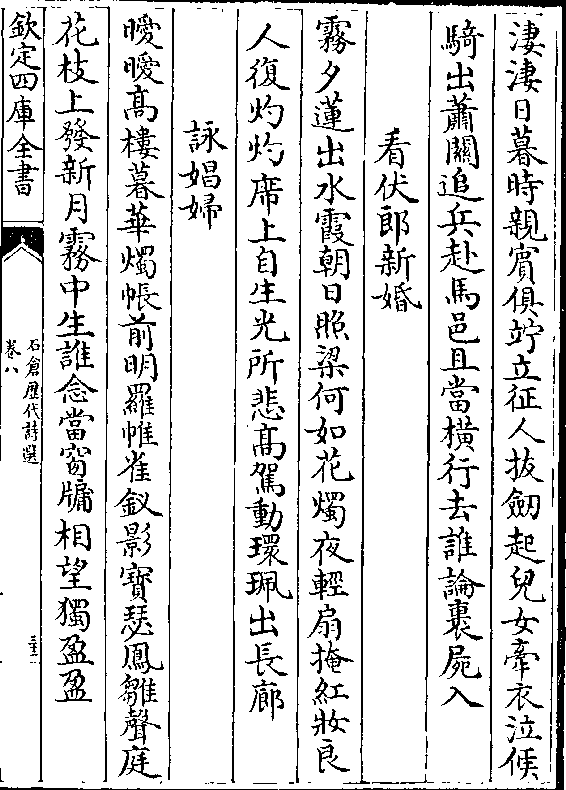 淒淒日暮時親賓俱竚立征人拔劒起兒女牽衣泣候
騎出蕭關追兵赴馬邑且當橫行去誰論裹屍入
看伏郎新婚
霧夕蓮出水霞朝日照梁何如花燭夜輕扇掩紅妝良
人復灼灼席上自生光所悲髙駕動環珮出長廊
詠娼婦
曖曖髙樓暮華燭帳前明羅帷雀釵影寶瑟鳳雛聲庭
花枝上發新月霧中生誰念當窗牖相望獨盈盈
欽定四庫全書
石倉歷代詩選
卷八
三十二